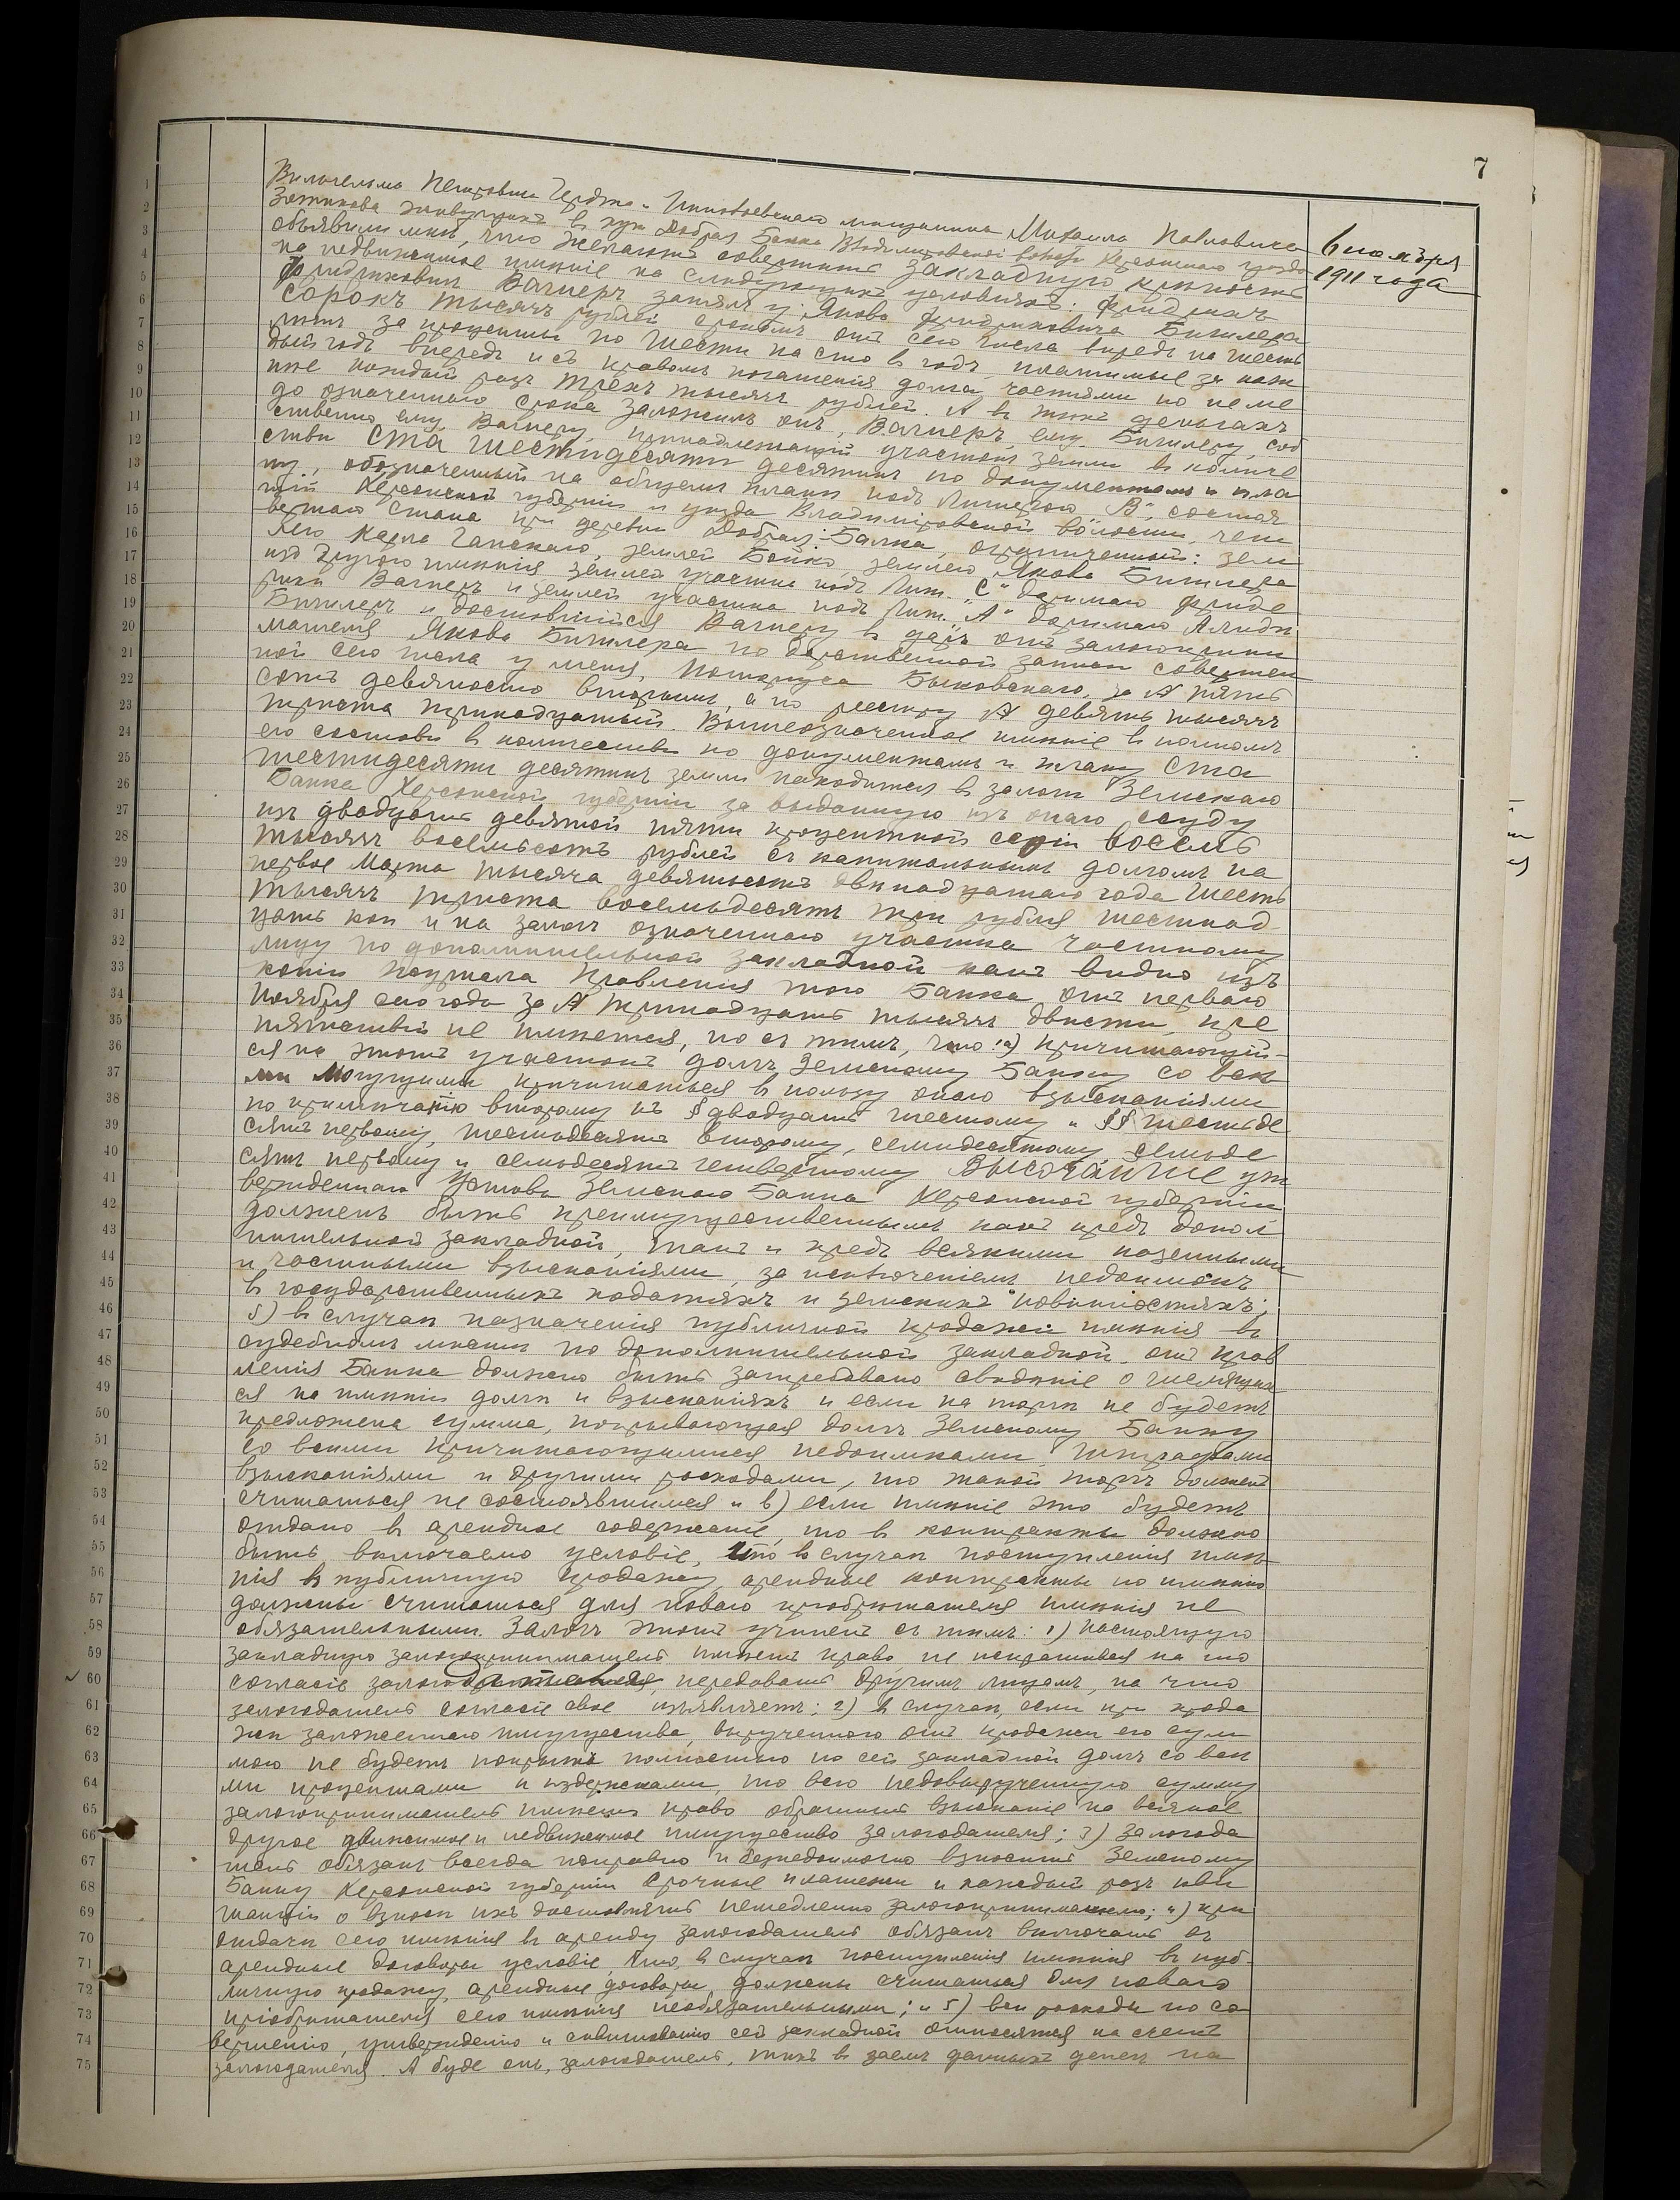 7
6 ноября
1911 года
Вильгельма Петровича Чердта и Николаевского мещанина Михаила Павловича
живущихъ въ хут. Добрая Балка Владимировской волости Херсонскаго уезда
объявили мнѣ, что желаютъ совершить закладную крѣпость
на недвижимое имѣніе на слѣдующихъ условіяхъ: Фридрихъ
Фридриховичъ Вагнеръ занялъ у Якова Фридриховича Бишлера
сорокъ тысячъ рублей срокомъ отъ сего числа впредь на шесть
лѣтъ за проценты по шести на сто въ годъ, платимые за каж
дый годъ впередъ и съ правомъ погашенія долга частями но не ме
нѣе каждый разъ трехъ тысячъ рублей. А въ тѣхъ деньгахъ
до означеннаго срока заложилъ онъ, Вагнеръ, ему, Бишлеру, соб
ственно ему, Вагнеру, принадлежащій участокъ земли въ количе
ствѣ ста шестидесяти десятинъ по документамъ и пла
ну, обозначенный на общемъ планѣ подъ литерою „В“, состоя
щій Херсонской губерніи и уѣзда Владиміровской волости,
стана при деревнѣ Добрая-Балка, ограниченный: зем
лею Карла Ганскаго, землей Бойко, землею Якова Бишлера
изъ другого имѣнія землей участка подъ Лит. „С“ даримаго Фриде
рикѣ Вагнеръ и землей участка подъ Лит. „А“ даримаго
Бишлеръ и доставшійся Вагнеру въ даръ отъ залогоприни
мателя Якова Бишлера по дарственной записи совершен
ной сего числа у меня, Нотаріуса Быховскаго, за № пять
сотъ девяносто вторымъ, а по реестру № девять тысячъ
триста тринадцатый. Вышеозначенное имѣніе въ полномъ
его составѣ въ количествѣ по документамъ и плану ста
шестидесяти десятинъ земли находится въ залогѣ Земскаго
Банка Херсонской губерніи за выданную изъ онаго ссуду
изъ двадцать девятой пяти процентной серіи восемь
тысячъ восемьсотъ рублей съ капитальнымъ долгомъ на
первое Марта тысяча девятьсотъ двѣнадцатаго года шесть
тысячъ триста восемьдесятъ три рубля шестнад
цать коп. и на залогъ означеннаго участка частному
лицу по дополнительной закладной какъ видно изъ
копіи журнала Правленія того Банка отъ перваго
Ноября сего года за № тринадцать тысячъ двѣсти, пре
пятствій не имѣется, но съ тѣмъ, что: а) причитающій-
ся на этотъ участокъ долгъ Земскому Банку со всѣ
ми могущими причитаться въ пользу онаго взысканіями
по примѣчанію второму къ § двадцать шестому и §§ шестьде
сятъ первому, шестьдесятъ второму, семидесятому, семьде
сятъ первому и семьдесятъ четвертому Высочайше ут
вержденнаго Устава Земскаго Банка Херсонской губерніи
долженъ быть преимущественнымъ какъ предъ допол
нительной закладной, такъ и предъ всякими казенными
и частными взысканіями, за исключеніемъ недоимокъ
въ государственныхъ податяхъ и земскихъ повинностяхъ;
б) въ случаѣ назначенія публичной продажи имѣнія въ
судебномъ мѣстѣ по дополнительной закладной, отъ Прав
ленія Банка должно быть затребовано свѣдѣніе о числящих
ся на имѣніи долгѣ и взысканіяхъ и если на торгѣ не будетъ
предложена сумма, покрывающая долгъ Земскому Банку
со всѣми причитающимися недоимками, штрафами
взысканіями и другими расходами, то такой торгъ долженъ
считаться не состоявшимся и в) если имѣніе это будетъ
отдано въ арендное содержаніе, то въ контракты должно
быть включаемо условіе, что въ случаѣ поступленія имѣ
нія въ публичную продажу, арендные контракты по имѣнію
должны считаться для новаго пріобрѣтателя имѣнія не
обязательными. Залогъ этотъ учиненъ съ тѣмъ: 1) настоящую
закладную залогоприниматель имѣетъ право не испрашивая на то
согласія залогодателя, передавать другимъ лицамъ, на что
залогодатель согласіе свое изъявляетъ; 2) въ случаѣ, если при прода
жѣ заложеннаго имущества, вырученною отъ продажи его сум
мою не будетъ покрытъ полностью по сей закладной долгъ со всѣ
ми процентами и издержками, то всю недовырученную сумму
залогоприниматель имѣетъ право обратить взысканіе на всякое
другое движимое и недвижимое имущество залогодателя; 3) залогода
тель обязанъ всегда исправно и безнедоимочно взносить Земскому
Банку Херсонской губерніи срочные платежи и каждый разъ кви
танціи о взносѣ ихъ доставлять немедленно залогопринимателю; 4) при
отдачѣ сего имѣнія въ аренду залогодатель обязанъ включать въ
арендные договоры условіе, что, въ случаѣ поступленія имѣнія въ пуб-
личную продажу, арендные договоры должны считаться для новаго
пріобрѣтателя сего имѣнія необязательными; и 5) всѣ расходы по со
вершенію, утвержденію и
сей закладной относятся на счетъ
залогодателя. А буде онъ, залогодатель, тѣхъ въ заемъ данныхъ денегъ на